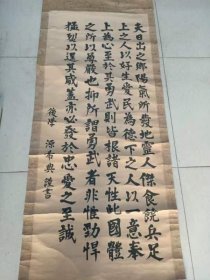 夫日出之鄉陽氣所發地靈人傑食饒兵足
上之人以好生愛民為德下之人以一意奉
上為心至於其勇武則皆根諸天性此國體
之所以尊嚴也抑所謂勇武者非惟勁悍
猛烈以逞其威蓋亦必發於忠愛之至誠
後學
源希典謹書